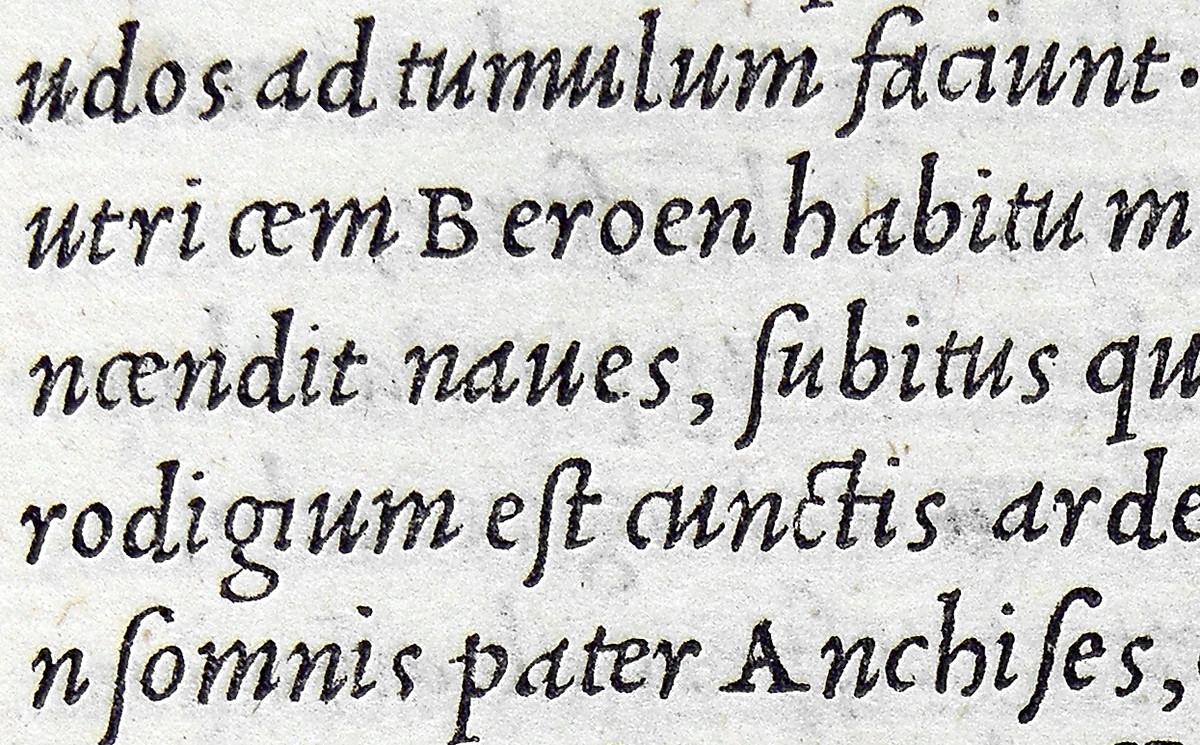 udos ad tumulum faciunt.
utricem Beroen habitu m
ncendit naues, ſubitus qu
rodigium eſt cunctis arde
n ſomnis pater Anchiſes,